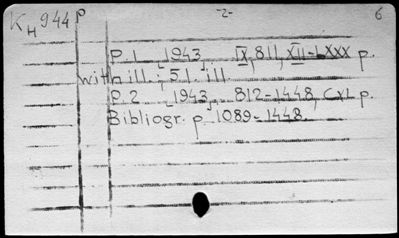 K H 944 P -2- 6
P. 1 1943, IX, 811, XII-LXXX p.
with ill.; 5 l. ill.
P. 2 1943, 812-1448, CXL p.
Bibliogr. p. 1089-1448.